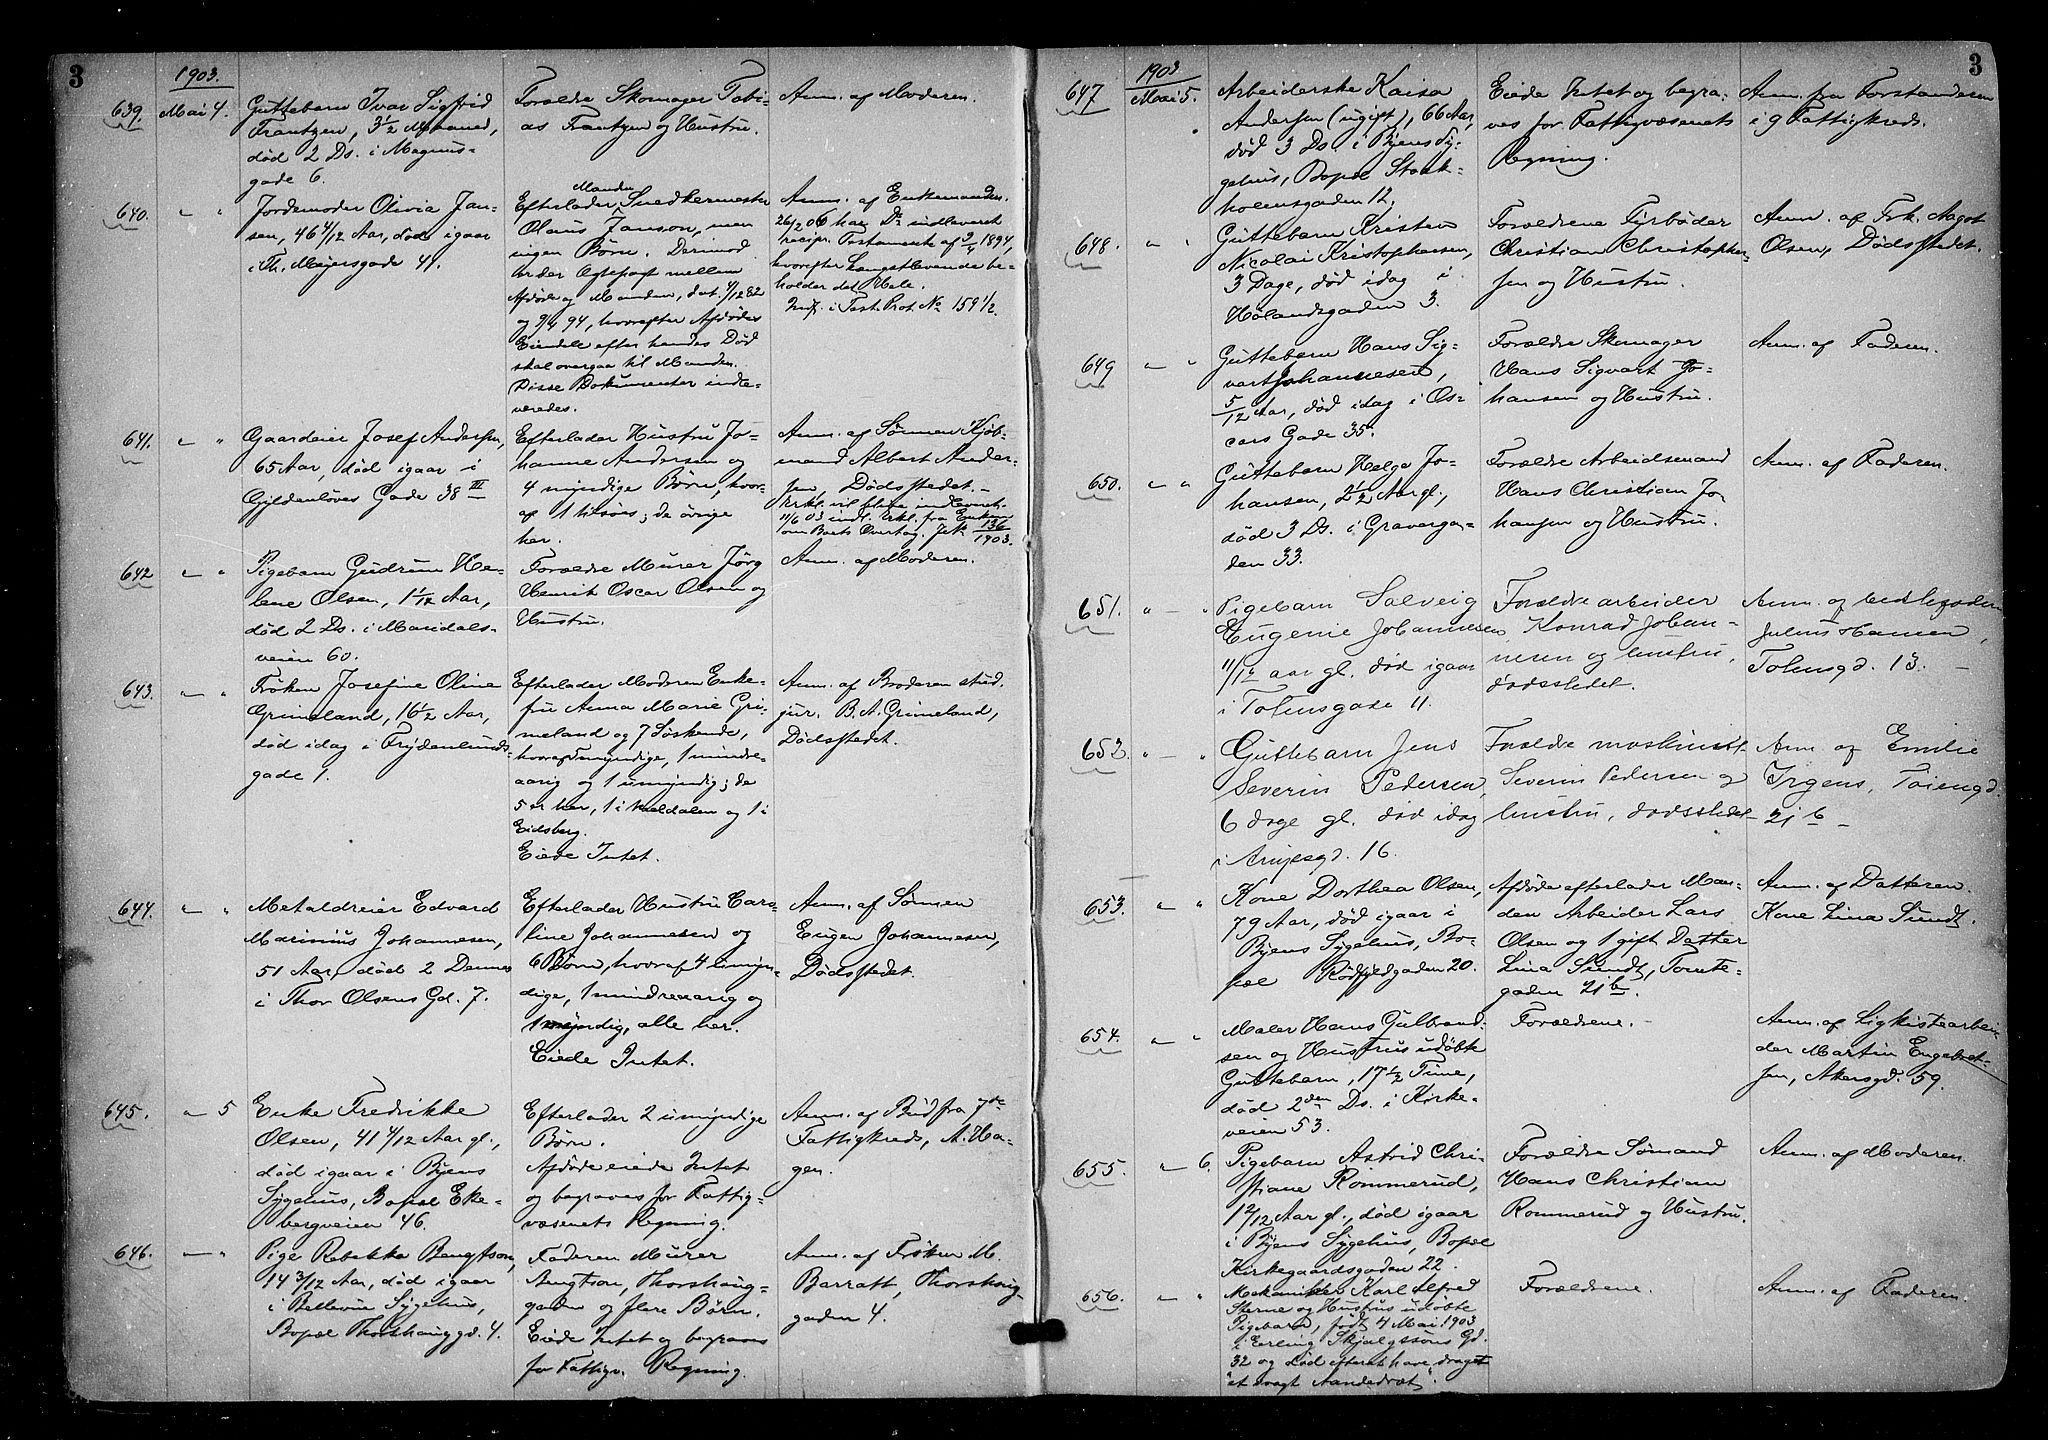 3
1903.
639. Mai 4.
Guttebarn Ivar Sigfrid
Frantzen, 3 1/2 Maaned,
død 2 Ds. i Magnus-
gade 6.
Forældre Skomager Tobi-
as Frantzen og Hustru.
Anm. af Moderen.
640. " "
Jordemoder Olivia Jan-
sen, 46 4/12 Aar, døde igaar
i Th. Meyersgade 41.
Efterlader Manden Snedkermester
Olaus Janson, men
ingen Børn. Derimod
er der Ægtepagt mellem
Afdøde og Manden, dat. 4/12 82
og 9/4 94, hvorefter Afdødes
Eiendele efter hendes Død
skal overgaa til Manden.
Disse Dokumenter indle-
veredes.
Anm. af Enkemanden.
26/2 06 har Ds indleveret
recipr. Testamente af 9/4 1894,
hvorefter Længstlevende be-
holder det Hele.
Indf. i Test. Prot. No 159 1/2.
641. " "
Gaardeier Josef Andersen,
65 Aar, død igaar i
Gyldenløves Gade 38 III
Efterlader Hustru Jo-
hanne Andersen og
4 myndige Børn, hvor-
af 1 tilsøes; de øvrige
her.
Anm. af Sønnen Kjøb-
mand Albert Ander-
sen, Dødsstedet. –
Erkl. vil blive indleveret.
11/6 03 indl. Erkl. fra Enken
om Boets Overtag. Jr. 136/1903.
642 " "
Pigebarn Gudrun He-
lene Olsen, 1 1/12 Aar,
død 2 Ds. i Maridals-
veien 60.
Forældre Murer Jørg
Henrik Oscar Olsen og
Hustru.
Anm. af Moderen.
643. " "
Frøken Josefine Oline
Grimeland, 16 1/2 Aar,
død idag i Frydenlunds-
gade 1.
Efterlader Moderen Enke-
fru Anna Marie Gri-
meland og 7 Søskende,
hvoraf 5 myndige, 1 mindre-
aarig og 1 umyndig; de
5 er her, 1 i Meldalen og 1 i
Eidsberg.
Eiede Intet.
Anm. af Broderen stud.
jur. B. A. Grimeland,
Dødsstedet.
644. " "
Metaldreier Edvard
Marinius Johannesen,
51 Aar, død 2 Dennes
i Thor Olsens Gd. 7.
Efterlader Hustru Caro-
line Johannesen og
6 Børn, hvoraf 4 umyn-
dige, 1 mindreaarig og
1 myndig, alle her.
Eiede Intet.
Anm. af Sønnen
Eugen Johannesen,
Dødsstedet.
645. " 5
Enke Fredrikke
Olsen, 41 4/12 Aar gl.,
død igaar i Byens
Sygehus, Bopæl Eke-
bergveien 46.
Efterlader 2 umyndige
Børn.
Afdøde eiede Intet
og begraves for Fattig-
væsenets Regning.
Anm. af Bud fra 7de
Fattigkreds, A. Ha-
gen.
646. " "
Pige Rebekka Bengtson,
14 3/12 Aar, død igaar
i Bellevue Sygehus,
Bopæl Thorshauggd. 4.
Faderen Murer
Bengtson, Thorshaug-
gaden og flere Børn.
Eiede Intet og begraves
for Fattigv. Regning.
Anm. af Frøken M.
Barratt, Thorshaug-
gaden 4.
3
1903
647 Mai 5.
Arbeiderske Kaisa
Andersen (ugift), 66 Aar,
død 3 Ds. i Byens Sy-
gehus, Bopæl Stock-
holmsgaden 12.
Eiede Intet og begra-
ves for Fattigvæsenets
Regning.
Anm. fra Forstanderen
i 9 Fattigkreds.
648. " "
Guttebarn Kristen
Nicolai Kristophersen,
3 Dage, død idag i
Hølandsgaden 3.
Forældrene Fyrbøder
Christian Christopher-
sen og Hustru.
Anm. af Frk. Aagot
Olsen, Dødsstedet.
649 " "
Guttebarn Hans Sig-
vart Johannesen,
5/12 Aar, død idag i Os-
cars Gade 35.
Forældre Skomager
Hans Sigvart Jo-
hansen og Hustru.
Anm. af Faderen.
650. " "
Guttebarn Helge Jo-
hansen, 2 1/2 Aar gl.,
død 3 Ds. i Gravergaa-
den 33.
Forældre Arbeidsmand
Hans Christian Jo-
hansen og Hustru.
Anm. af Faderen.
651. " – "
Pigebarn Solveig
Eugenie Johannesen,
11/12 aar gl. død igaar
i Tolensgade 11.
Forældre arbeider
Konrad Johan-
nesen og hustru,
dødsstedet.
Anm. af
Julius Hansen,
Tolensgd. 13. –
652. " – "
Guttebarn Jens
Severin Pedersen,
6 dage gl. død idag
i Arupsgd. 16.
Forældre maskinist
Severin Pedersen og
hustru, dødsstedet
Anm. af Emilie
Irgens, Tøiengd.
21 b –
653. " "
Kone Dorthea Olsen,
79 Aar, død igaar i
Byens Sygehus, Bo-
pæl Rødfyldgaden 20.
Afdøde efterlader Man-
den Arbeider Lars
Olsen og 1 gift Datter
Lina Sundt, Tomte-
gaden 21 b.
Anm. af Datteren
Kone Lina Sundt.
654. " "
Maler Hans Gulbrand-
sen og Hustrus udøbte
Guttebarn, 17 1/2 Time,
død 2den Ds. i Kirke-
veien 53.
Forældrene.
Anm. af Ligkistearbei-
der Martin Engebret-
sen, Akersgd. 59.
655. " 6.
Pigebarn Astrid Chri-
stiane Rommerud,
1 2/12 Aar gl., død igaar
i Byens Sygehus, Bopæl
Kirkegaardsgaden 22.
Forældre Sømand
Hans Christian
Rommerud og Hustru.
Anm. af Moderen.
656. " "
Mekaniker Karl Alfred
Sterne og Hustrus udøbte
Pigebarn, født 4 Mai 1903
i Erling Skjalgssøns Gd.
32 og død efterat have draget
"et svagt Aandedræt".
Forældrene.
Anm. af Faderen.